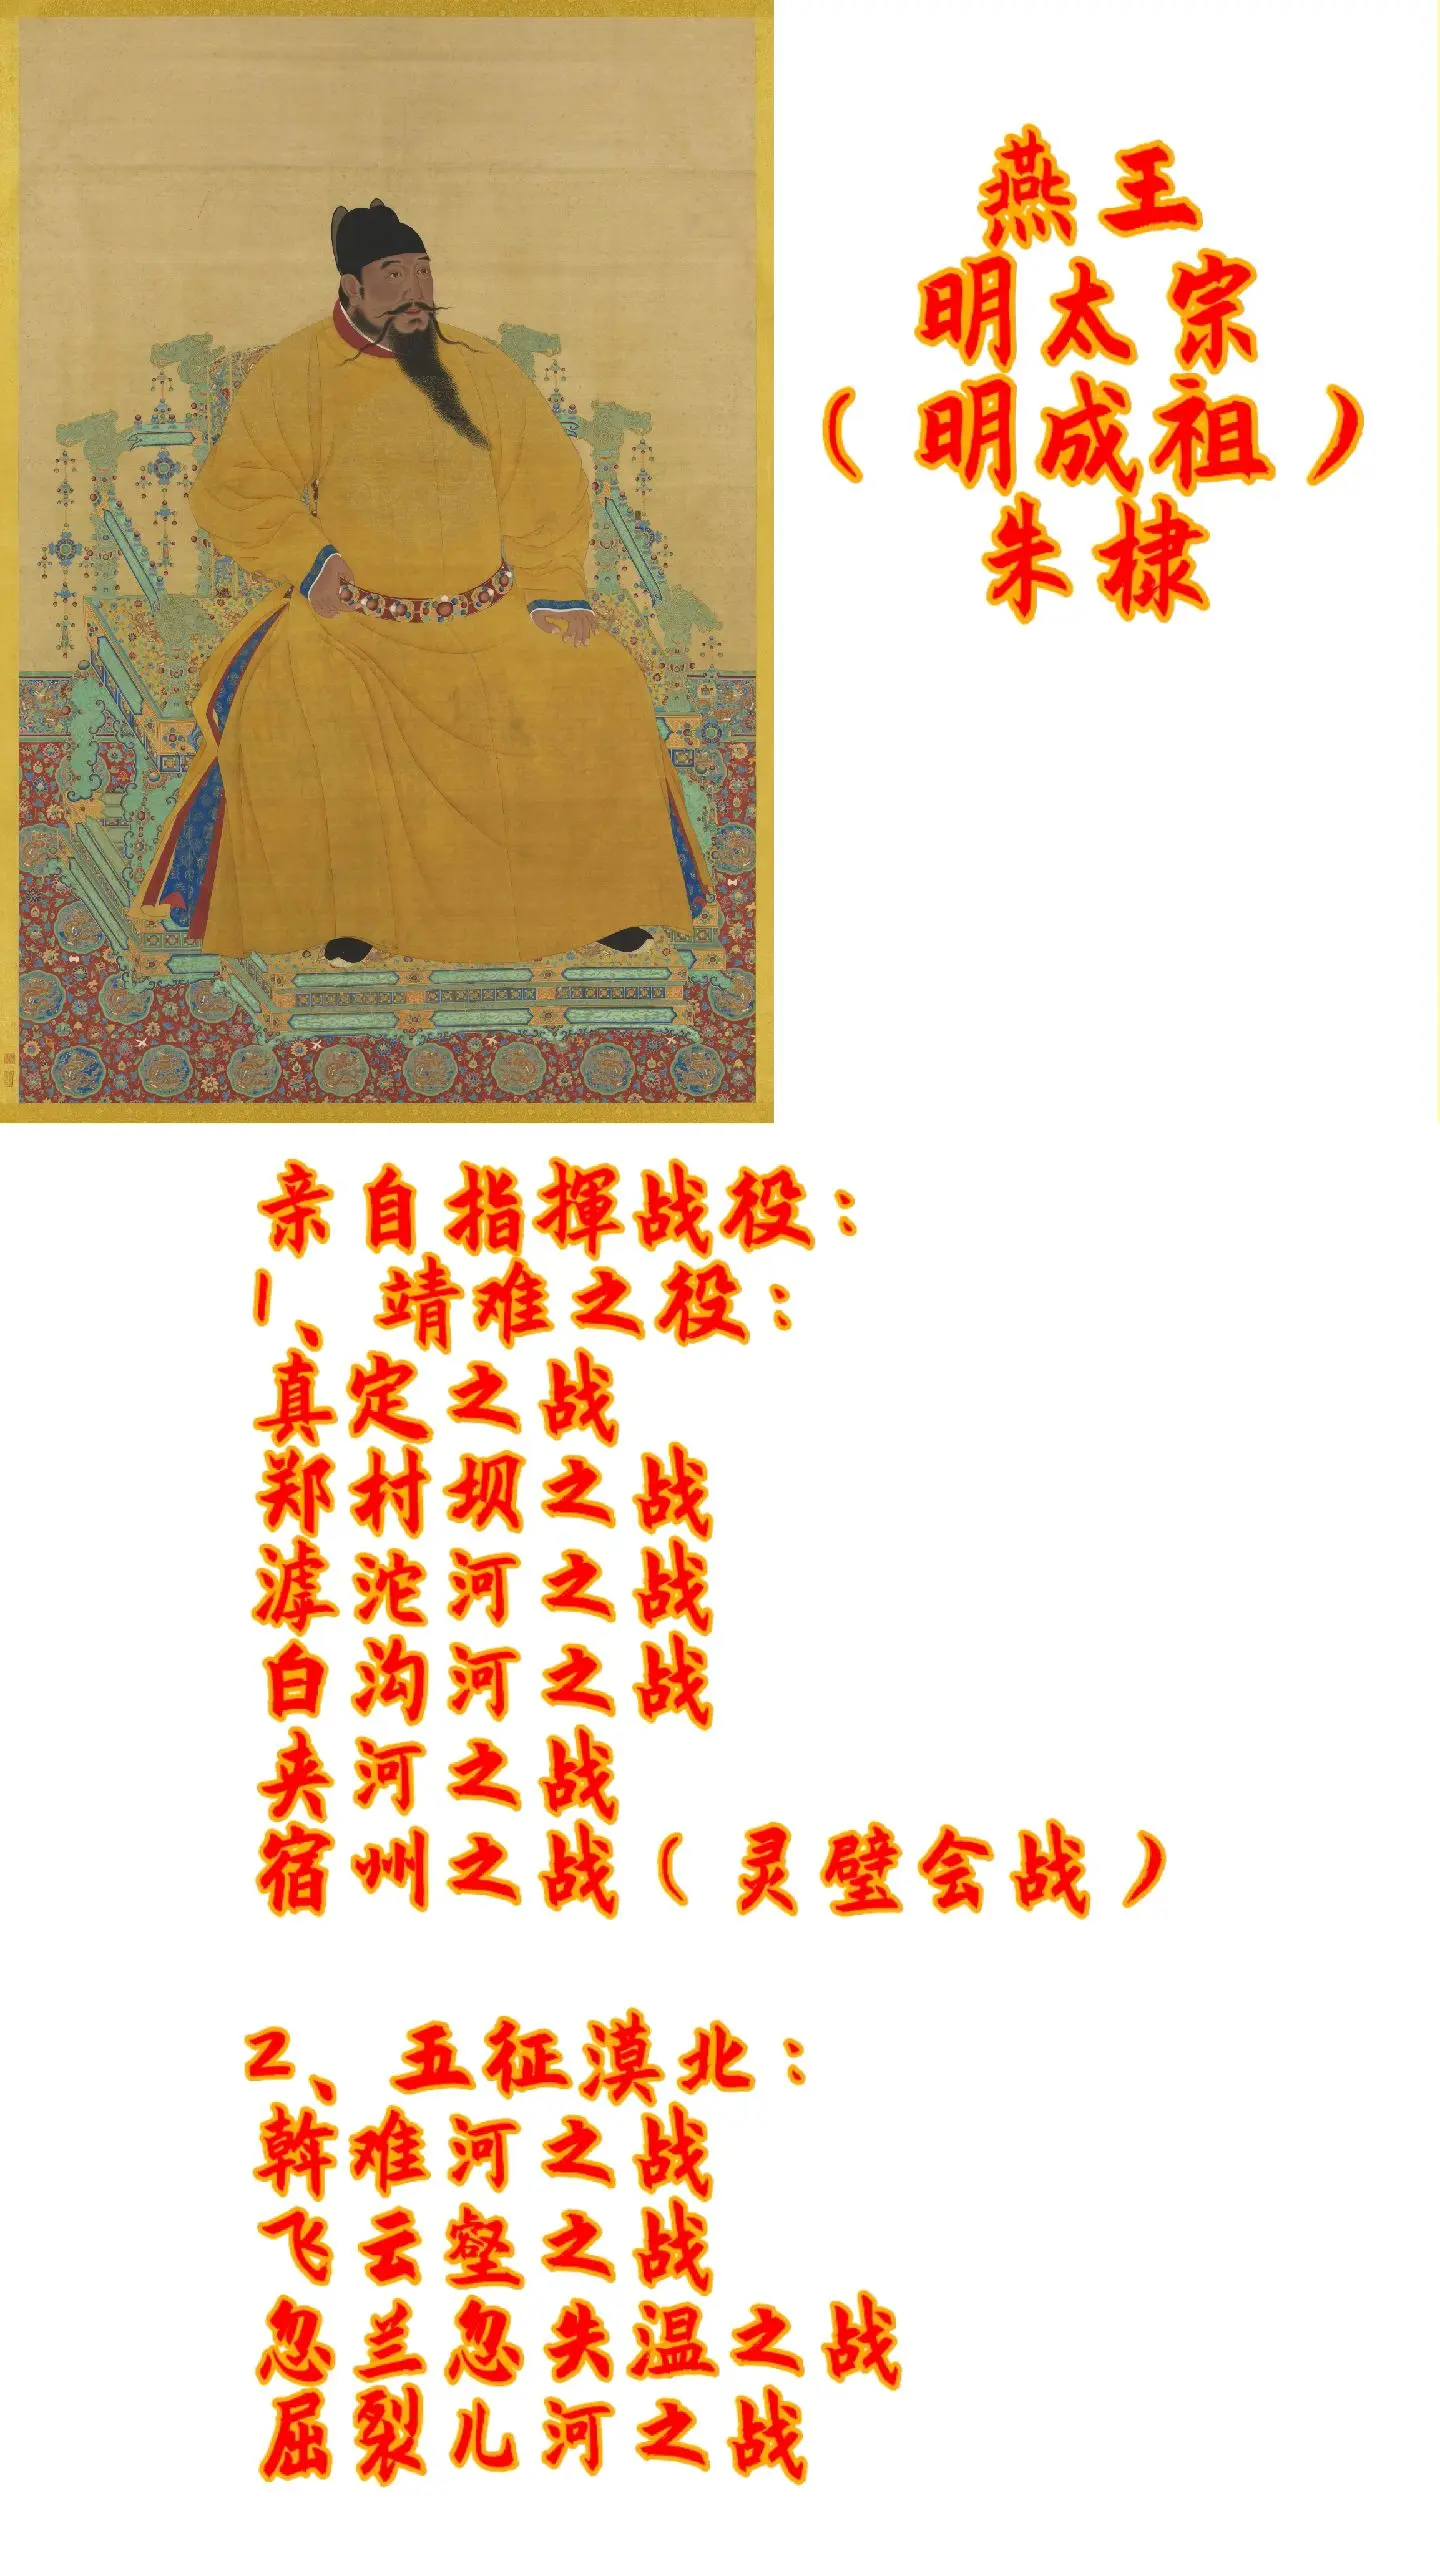 燕王
明太宗
（明成祖）
朱棣
亲自指揮战役：
1、靖难之役：
真定之战
郑村坝之战
滹沱河之战
白沟河之战
夹河之战
宿州之战（灵璧会战）
2、五征漠北：
斡难河之战
飞云壑之战
忽兰忽失温之战
屈裂儿河之战